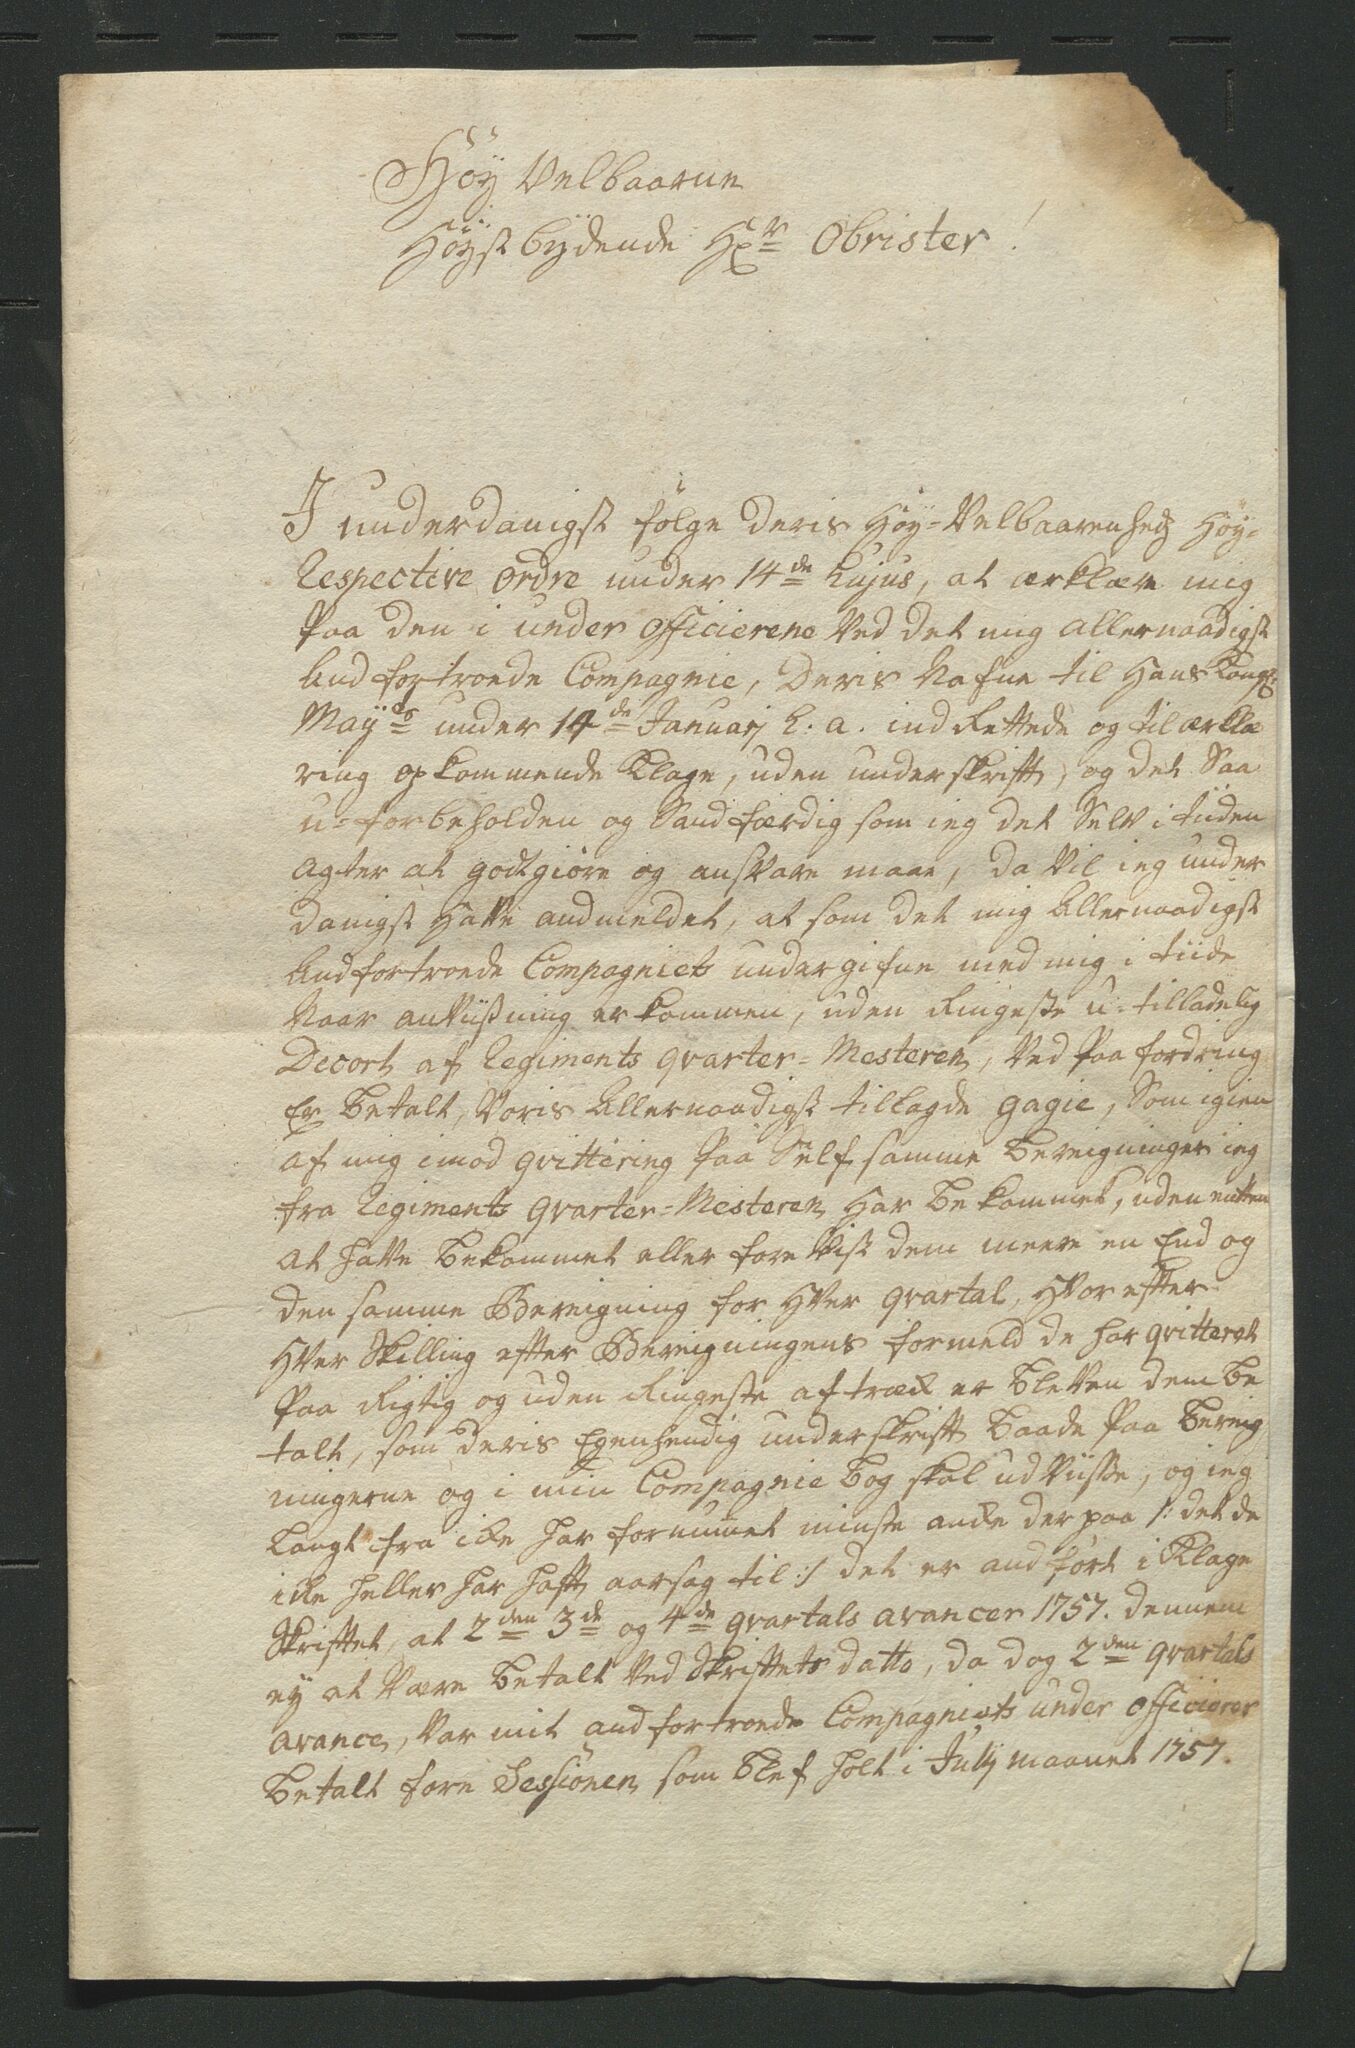 Høÿ Velbaarne
Høÿst bÿdende Hr Obrister!
I underdanigst følge deris Høÿ-Velbaarenhedz Høÿ-
Respective Ordre under 14de hujus, at ærklære mig
Paa den i under Officierene Ved det mig allernaadigst
And fortroede Compagnie, Deris Nafne til Hans Kongl:
Mayts under 14de Januarj h. a. ind Rettede og til ærklæ
ring op kommende Klage, uden underskrifft, og det Saa
u-forbeholden og Sandfærdig som ieg det Selv i tiiden
agter at godtgiøre og ansvare maae, da Vil ieg under
danigst Hafve andmeldet, at som det mig Allernaadigst
Andfortroede Compagniets undergifne med mig i tiide
Naar anviisning er kommen, uden Ringeste u-tilladelig
Decort af Regiments Qvarter-Mesteren, Ved Paa fordring
Er betalt, Voris Allernaadigst tillagde gagie, Som igien
af mig imod Qvittering Paa Self samme bereigninger ieg
fra Regiments Qvarter-Mesteren har bekommet, uden enten
at hafve bekommet eller fore Viist dem meere en End og
den samme Bereigning for Hver Qvartal, Hvor efter
Hver Skilling efter Bereigningens formeld de har qvitteret
Paa Rigtig og uden Ringeste aftræk er bleven dem be
talt, som Deris Egenhendig underskrifft baade Paa bereig
ningerne og i min Compagnie bog skal udviisse, og ieg
langt fra icke har fornummet minste anke der paa /: det de
icke heller har hafft aarsag til :/ det er andført i Klage
Skrifftet, at 2den 3de og 4de Qvartals avancer 1757. dennem
ey at Være betalt Ved Skrifftets datto, da dog 2den Qvartals
avance, Var mit andfortroede Compagniets under Officierer
betalt fore Sessionen, som blef holt i Julÿ maanet 1757.